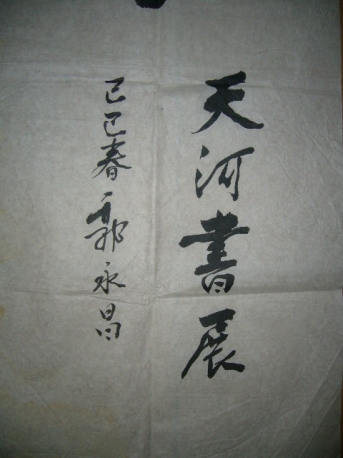 天河書展
己巳春郭永昌